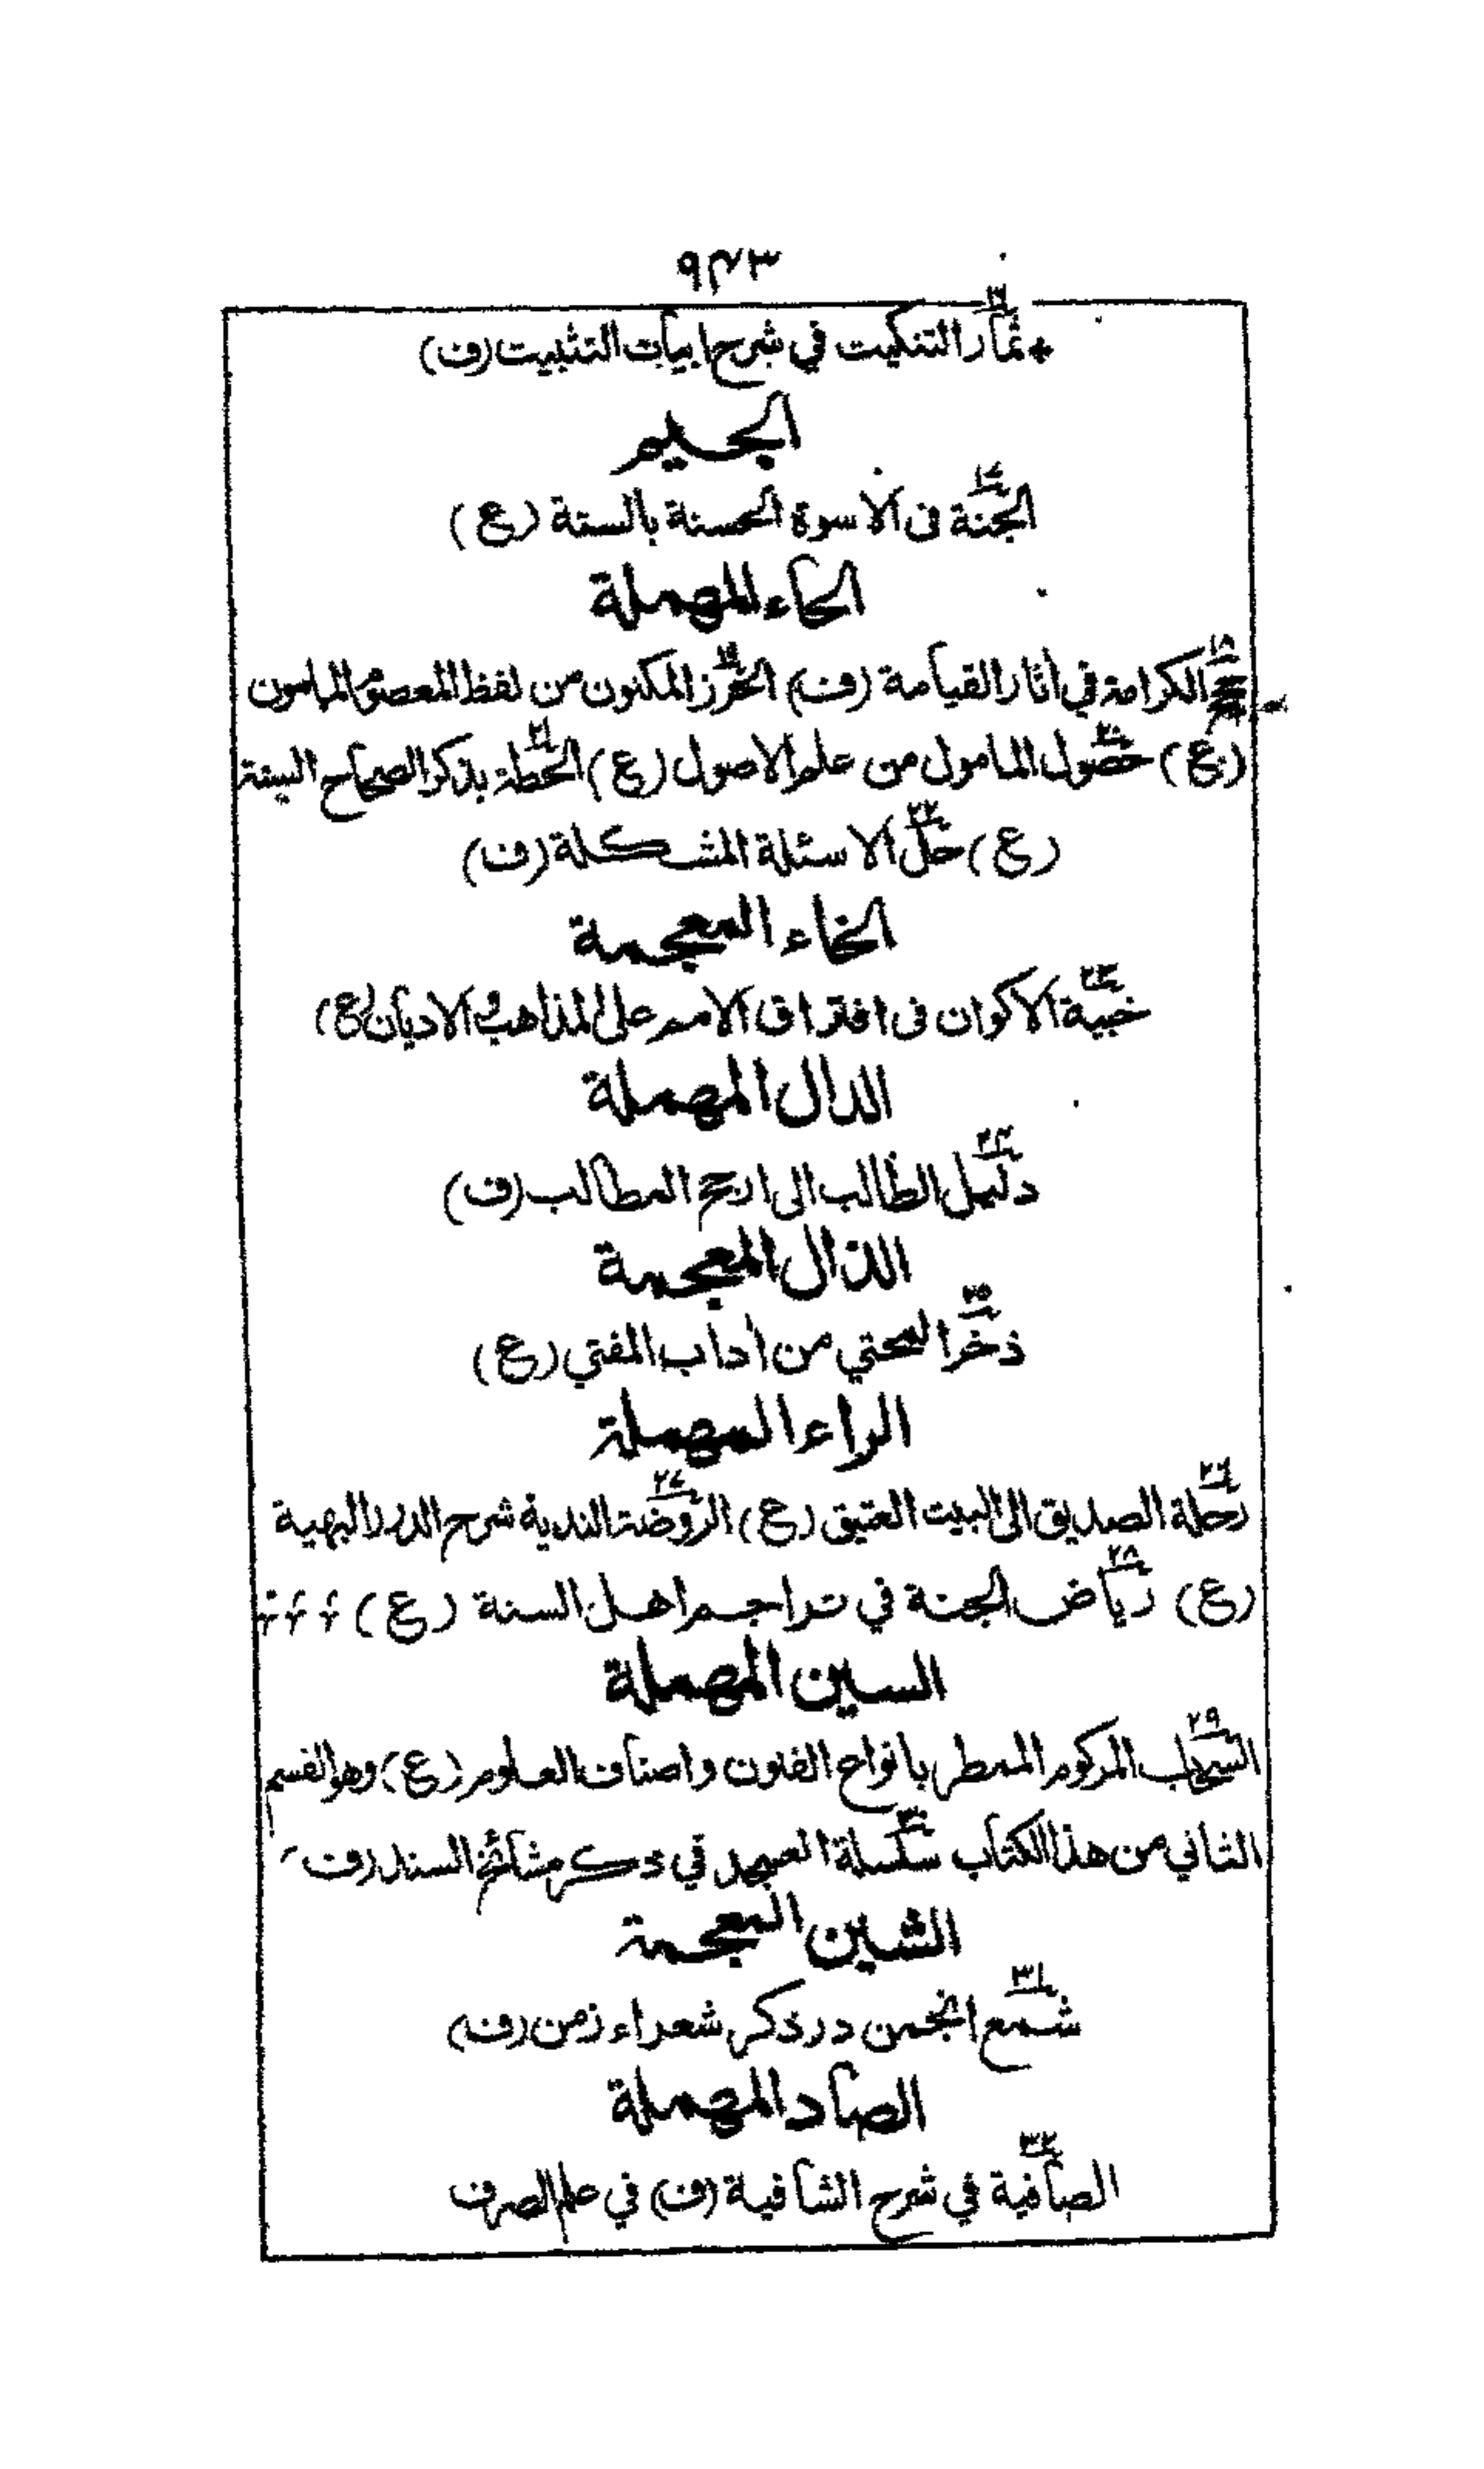 ٩٤٣
* ثمار التنكيت في شرح ابيات التثبيت (ف)
الجيم
١٧
الجنة في الاسوة الحسنة بالسنة (ع)
الحاء المهملة
١٨ ١٩
حجج الكرامة في اثار القيامة (ف) الحرز المكنون من لفظ المعصوم المامون
٢٠ ٢١
(ع) حصول المامول من علم الاصول (ع) الحطة بذكر الصحاح الستة
٢٢
(ع) حل الاسئلة المشكلة (ف)
الخاء المعجمة
٢٣
خبيئة الاكوان في افتراق الامم على المذاهب والاديان (ع)
الدال المهملة
٢٤
دليل الطالب الى ارجح المطالب (ف)
الذال المعجمة
٢٥
ذخر المحتي من اداب المفتي (ع)
الراء المهملة
٢٦ ٢٧
رحلة الصديق الى البيت العتيق (ع) الروضة الندية شرح الدرر البهية
٢٨
(ع) رياض الجنة في تراجم اهل السنة (ع)
السين المهملة
٢٩
السحاب المركوم الممطر بانواع الفنون واصناف العلوم (ع) وهو القسم
٣٠
الثاني من هذا الكتاب سلسلة العسجد في ذكر مشائخ السند (ف
الشين المعجمة
٣١
شمع انجمن در ذكر شعراء زمن (ف)
الصاد المهملة
٣٢
الصافية في شرح الشافية (ف) في علم الصرف